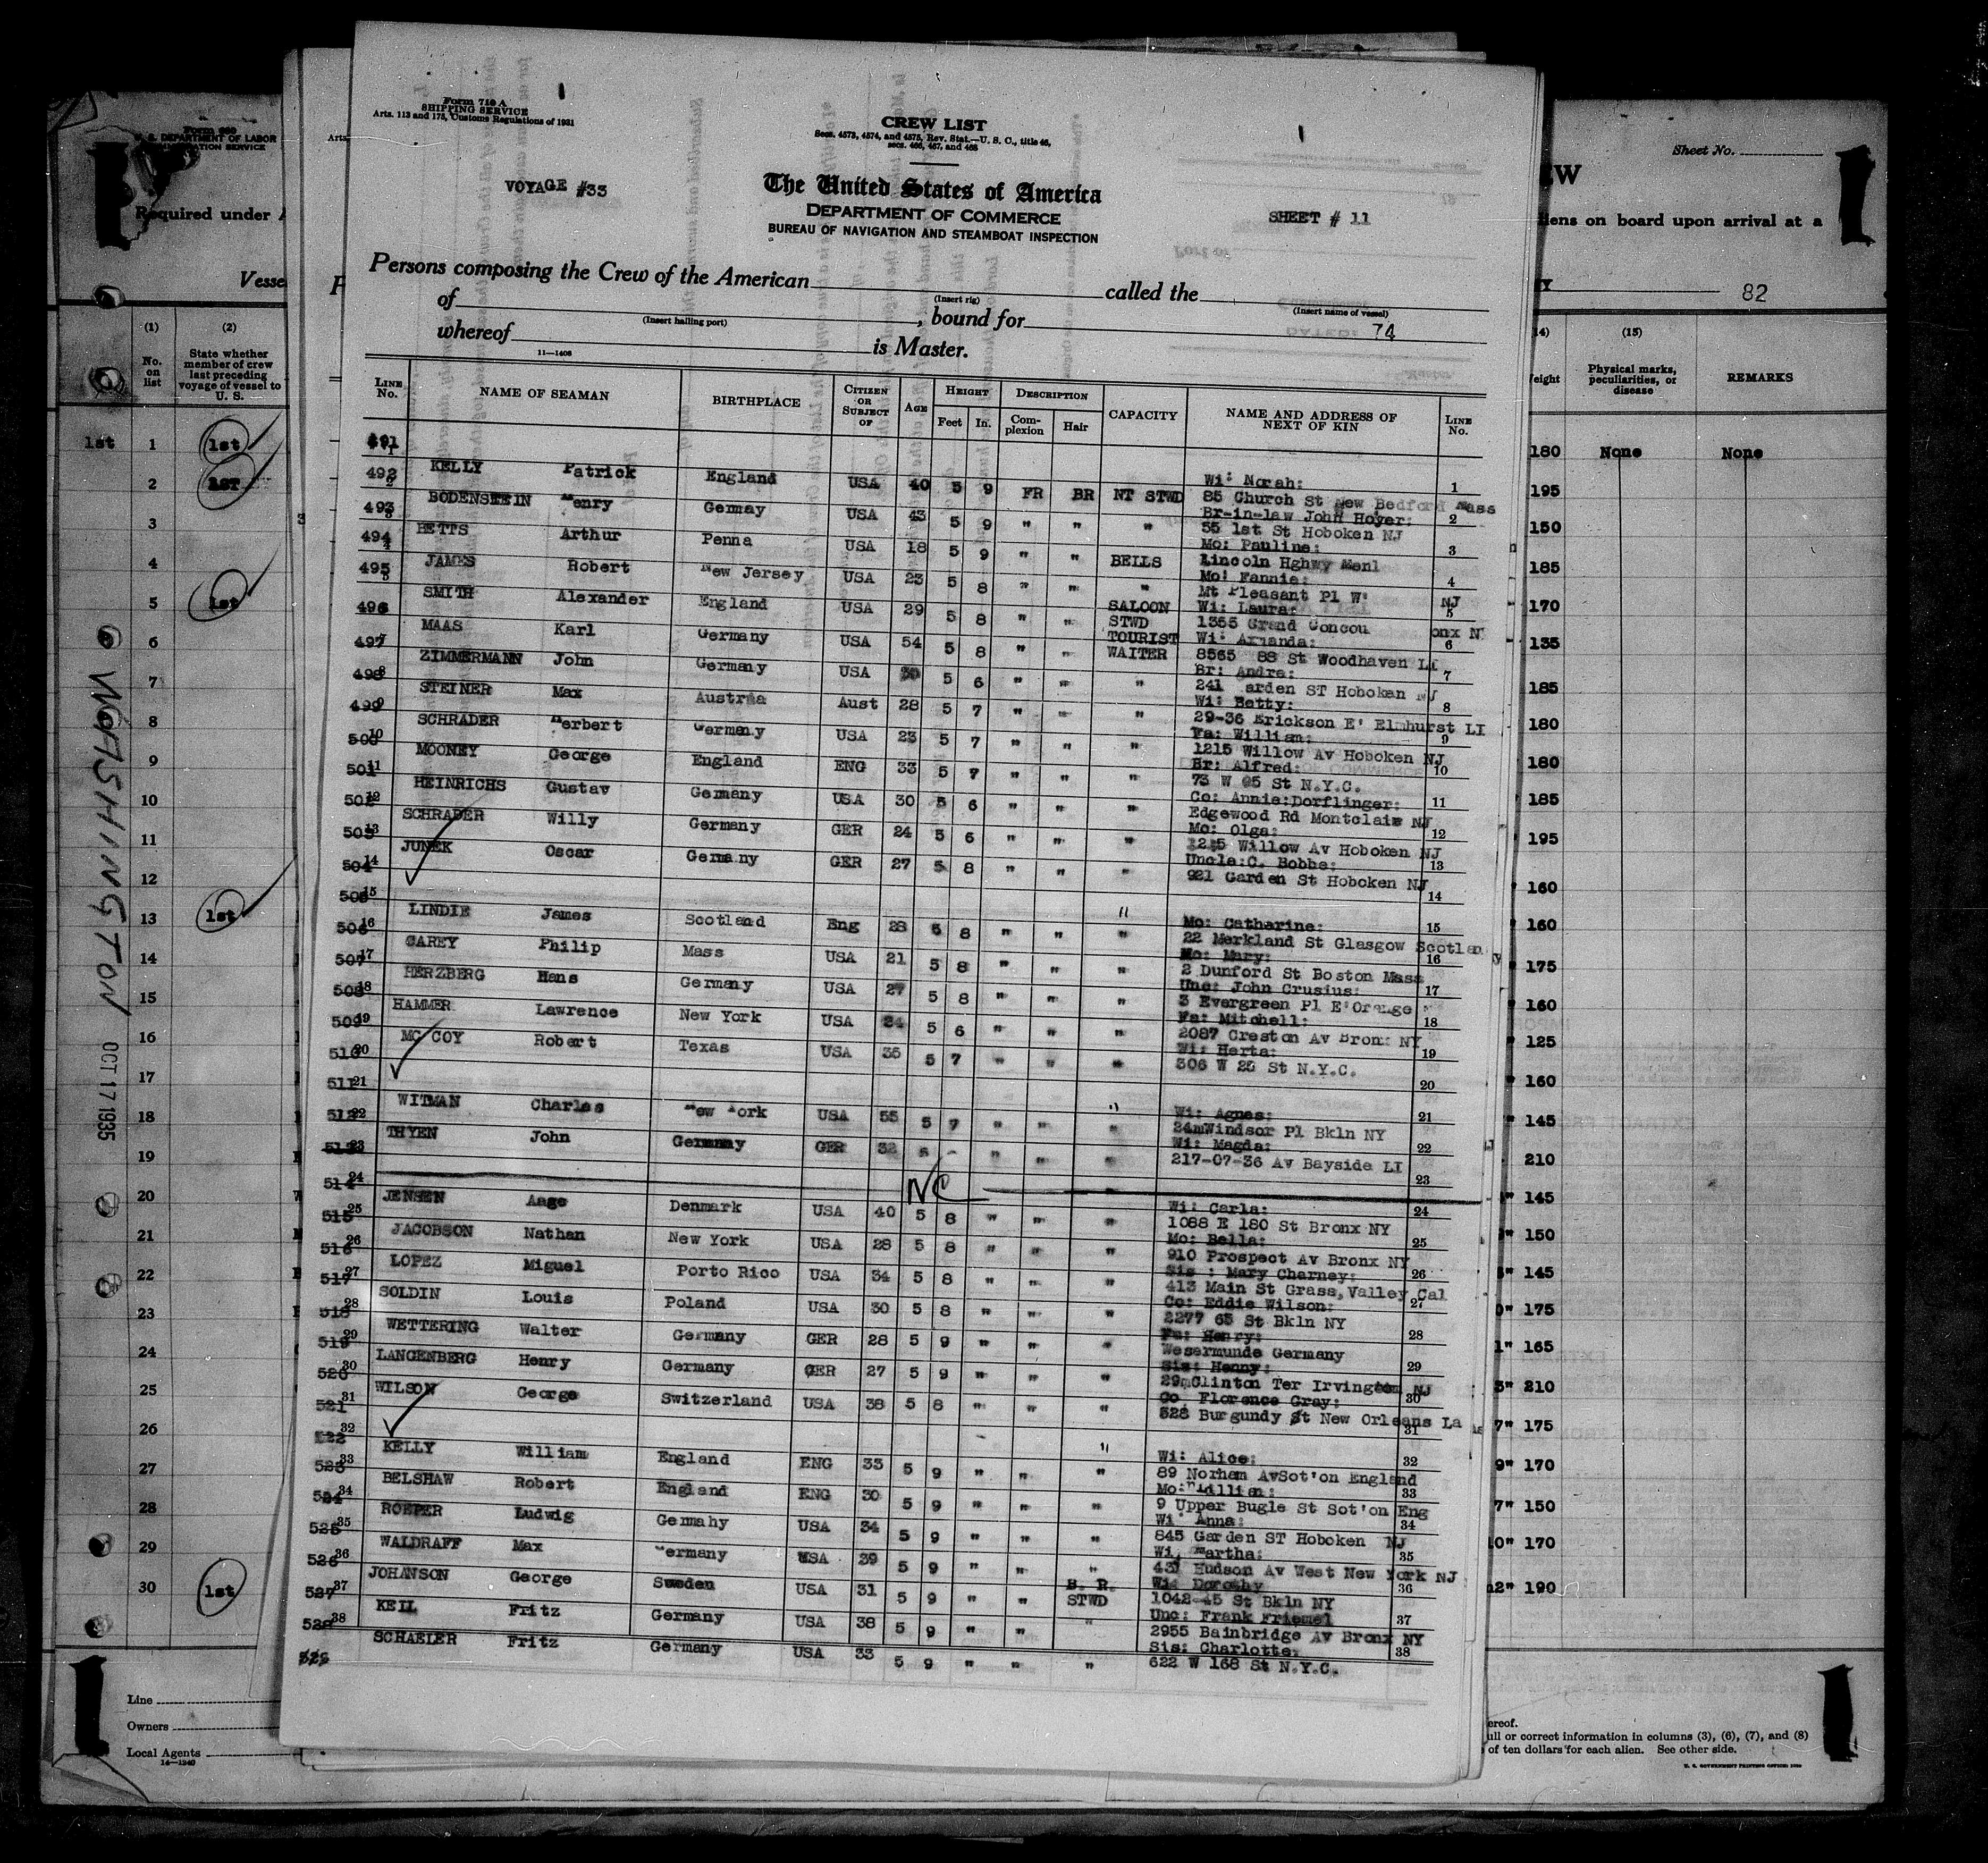 Form 710 A
SHIPPING SERVICE
Arts. 113 and 175, Customs Regulations of 1931
CREW LIST
Secs. 4573, 4574, and 4575, Rev. Stat.—U. S. C., title 46,
secs. 466, 467, and 468
VOYAGE #33
The United States of America
DEPARTMENT OF COMMERCE
BUREAU OF NAVIGATION AND STEAMBOAT INSPECTION
SHEET # 11
Persons composing the Crew of the American (Insert rig) called the (Insert name of vessel)
of (Insert hailing port), bound for 74
whereof is Master.
11—1406
LINE No. NAME OF SEAMAN BIRTHPLACE CITIZEN OR SUBJECT OF AGE HEIGHT Feet In. DESCRIPTION Complexion Hair CAPACITY NAME AND ADDRESS OF NEXT OF KIN LINE No.
492 KELLY Patrick England USA 40 5 9 FR BR NT STWD Wi: Norah: 1
85 Church St New Bedford Mass
493 BODENSTEIN Henry Germay USA 43 5 9 " " " Br-in-law John Hoyer: 2
55 1st St Hoboken NJ
494 BETTS Arthur Penna USA 18 5 9 " " BELLS Mo: Pauline: 3
Lincoln Hghwy Menl
495 JAMES Robert New Jersey USA 23 5 8 " " " Mo: Fannie: 4
Mt Pleasant Pl W' NJ
496 SMITH Alexander England USA 29 5 8 " " SALOON STWD Wi: Laura: 5
1355 Grand Concou onx N
497 MAAS Karl Germany USA 54 5 8 " " TOURIST WAITER Wi: Amanda: 6
8565 88 St Woodhaven LI
498 ZIMMERMANN John Germany USA 30 5 6 " " " Br: Andre: 7
241 arden ST Hoboken NJ
499 STEINER Max Austria Aust 28 5 7 " " " Wi: Betty: 8
29-36 Erickson E' Elmhurst LI
500 SCHRADER Herbert Germany USA 23 5 7 " " " Fa: William: 9
1215 Willow Av Hoboken NJ
501 MOONEY George England ENG 33 5 7 " " " Br: Alfred: 10
73 W 95 St N.Y.C.
502 HEINRICHS Gustav Germany USA 30 5 6 " " " Co: Annie:Dorflinger: 11
Edgewood Rd Montclair NJ
503 SCHRADER Willy Germany GER 24 5 6 " " " Mo: Olga: 12
1215 Willow Av Hoboken NJ
504 JUNEK Oscar Germany GER 27 5 8 " " " Uncle:C. Bobbe: 13
921 Garden St Hoboken NJ
505 14
506 LINDIE James Scotland Eng 28 5 8 " " " Mo: Catharine: 15
22 Merkland St Glasgow Scotlan
507 CAREY Philip Mass USA 21 5 8 " " " Mo: Mary: 16
2 Dunford St Boston Mass
508 HERZBERG Hans Germany USA 27 5 8 " " " Unc: John Crusius: 17
3 Evergreen Pl E'Orange
509 HAMMER Lawrence New York USA 24 5 6 " " " Fa: Mitchell: 18
2087 Creston Av Bronx NY
510 MC COY Robert Texas USA 35 5 7 " " " Wi: Herta: 19
306 W 25 St N.Y.C.
511 20
512 WITMAN Charles New York USA 55 5 7 " " " Wi: Agnes: 21
24mWindsor Pl Bkln NY
513 THYEN John Germany GER 32 5 - " " " Wi: Magda: 22
217-07-36 Av Bayside LI
514 NC 23
515 JENSEN Aage Denmark USA 40 5 8 " " " Wi: Carla: 24
1088 E 180 St Bronx NY
516 JACOBSON Nathan New York USA 28 5 8 " " " Mo: Bella: 25
910 Prospect Av Bronx NY
517 LOPEZ Miguel Porto Rico USA 34 5 8 " " " Sis : Mary Charney: 26
413 Main St Grass,Valley Cal
518 SOLDIN Louis Poland USA 30 5 8 " " " Co: Eddie Wilson: 27
2277 65 St Bkln NY
519 WETTERING Walter Germany GER 28 5 9 " " " Fa: Henry: 28
Wesermunde Germany
520 LANGENBERG Henry Germany GER 27 5 9 " " " Sis: Henny: 29
29mClinton Ter Irvington NJ
521 WILSON George Switzerland USA 38 5 8 " " " Co Florence Gray: 30
528 Burgundy St New Orleans La 31
522
523 KELLY William England ENG 33 5 9 " " " Wi: Alice: 32
89 Norham AvSot'on England
524 BELSHAW Robert England ENG 30 5 9 " " " Mo: Lillian: 33
9 Upper Bugle St Sot'on Eng
525 ROEPER Ludwig Germahy USA 34 5 9 " " " Wi Anna: 34
845 Garden ST Hoboken NJ
526 WALDRAFF Max Germany USA 39 5 9 " " " Wi, Martha: 35
437 Hudson Av West New York NJ
527 JOHANSON George Sweden USA 31 5 9 " " B. R. STWD Wi: Dorothy 36
1042-45 St Bkln NY
528 KEIL Fritz Germany USA 38 5 9 " " " Unc: Frank Friemel 37
2955 Bainbridge Av Bronx NY
529 SCHAEIER Fritz Germany USA 33 5 9 " " " Sis: Charlotte: 38
622 W 168 St N.Y.C.
U. S. DEPARTMENT OF LABOR
Required under A
Vesse
(1) (2)
No. on list
State whether member of crew last preceding voyage of vessel to U. S.
1st 1 1st
2 1st
3
4
5 1st
6
7
8
9
10
11
12
13 1st
14
15
16
17
18
19
20
21
22
23
24
25
26
27
28
29
30 1st
WASHINGTON
OCT 17 1935
Line
Owners
Local Agents
14—1240
Sheet No.
EW
liens on board upon arrival at a
82
(14) (15)
eight
Physical marks, peculiarities, or disease
REMARKS
180 None None
195
150
185
170
135
185
180
180
185
195
160
160
175
160
125
160
145
210
145
150
145
175
165
210
175
170
150
170
190
ereof.
ull or correct information in columns (3), (6), (7), and (8)
of ten dollars for each alien. See other side.
U. S. GOVERNMENT PRINTING OFFICE